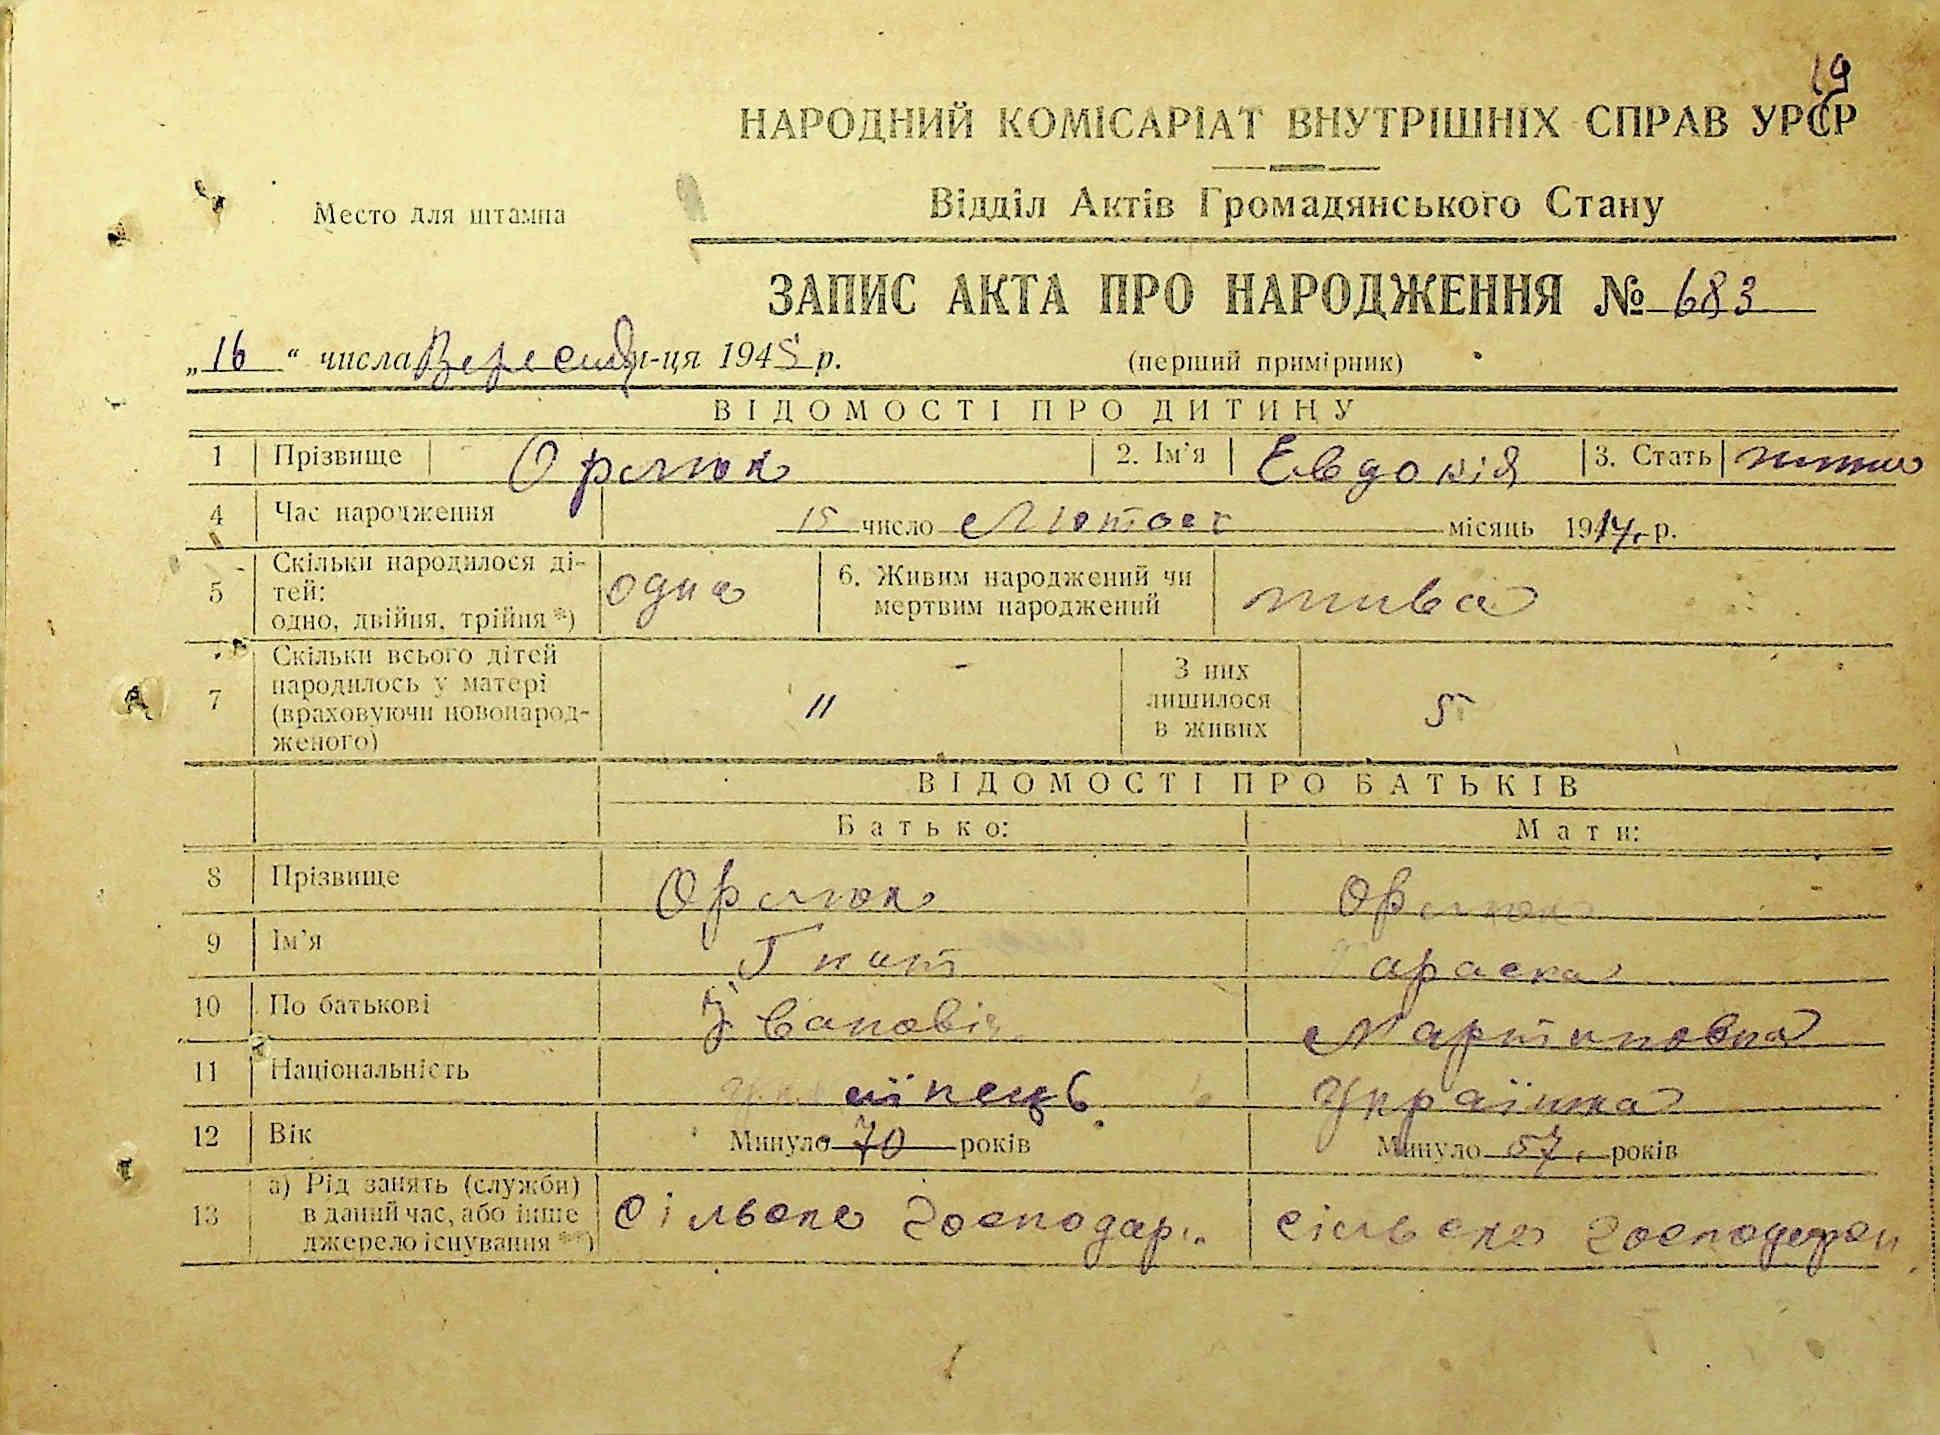 19
НАРОДНИЙ КОМІСАРІАТ ВНУТРІШНІХ СПРАВ УРСР
Место для штампа
Відділ Актів Громадянського Стану
ЗАПИС АКТА ПРО НАРОДЖЕННЯ № 683
„16“ числа Вересня м-ця 1945 р.
(перший примірник)
ВІДОМОСТІ ПРО ДИТИНУ
1 Прізвище Орлюк 2. Ім'я Евдокія 3. Стать
4 Час народження 15 число Лютого місяць 1914. р.
5 Скільки народилося ді-
тей:
одно, двійня, трійня *) одна
6. Живим народжений чи
мертвим народжений жива
7 Скільки всього дітей
народилось у матері
(враховуючи новонарод-
женого) 11
З них
лишилося
в живих 5
ВІДОМОСТІ ПРО БАТЬКІВ
Батько: Мати:
8 Прізвище Орлюк Орлюк
9 Ім'я Гнат Параска
10 По батькові Іванович Мартиновна
11 Національність українець Українка
12 Вік Минуло 70 років Минуло 57. років
13 а) Рід занять (служби)
в даний час, або інше
джерело існування **) сільске господар. сільске господарст